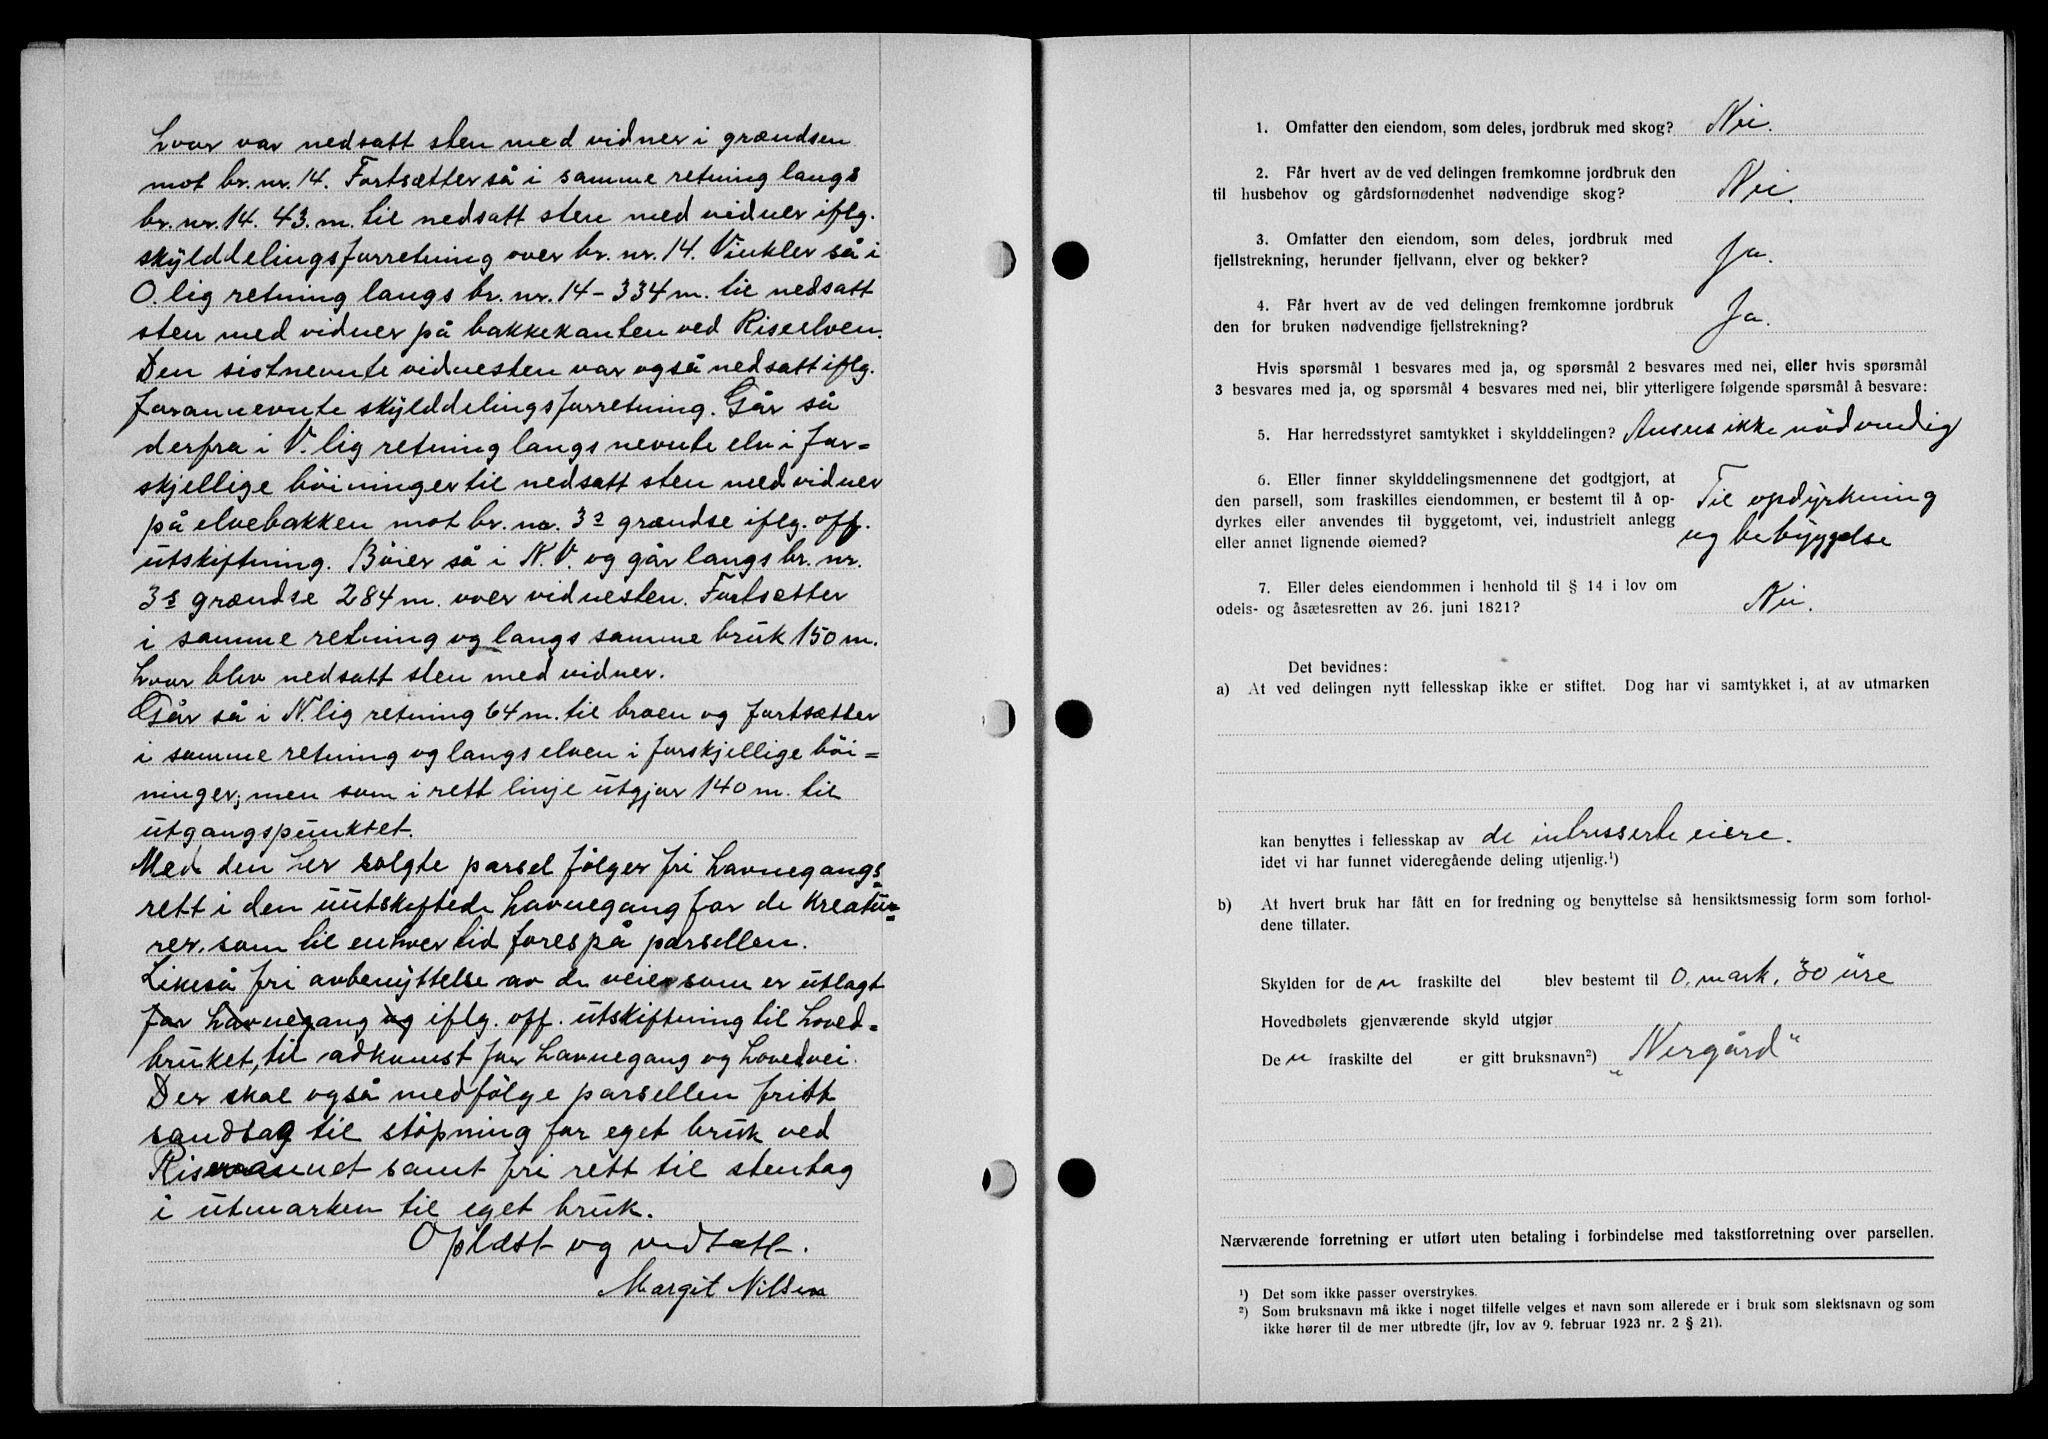 hvor var nedsatt sten med vidner i grændsen
mot br. nr. 14. Fortsætter så i samme retning langs
br. nr. 14. 43. m. til nedsatt sten med vidner iflg.
skylddelingsforretning over br. nr. 14. Vinkler så i
O. lig retning langs br. nr. 14 - 334 m. til nedsatt
sten med vidner på bakkekanten ved Riseelven.
Den sistnevnte vidnesten var også nedsatt iflg.
forannevnte skylddelingsforretning. Går så
derfra i V. lig retning langs nevnte elv i for=
skjellige böininger til nedsatt sten med vidner
på elvebakken mot br. nr. 3s grændse iflg. off.
utskiftning. Böier så i N.V. og går langs br. nr.
3s grændse 284 m. over vidnesten. Fortsætter
i samme retning og langs samme bruk 150 m.
hvor blev nedsatt sten med vidner.
Går så i N. lig retning 64 m. til broen og fortsætter
i samme retning og langs elven i forskjellige böi=
ninger, men som i rett linje utgjør 140 m. til
utgangspunktet.
Med den her solgte parsel følger fri havnegangs=
rett i den uutskiftede havnegang for de kreatu=
rer, som til enhver tid fores på parsellen.
Likeså fri avbenyttelse av de veier som er utlagt
for havnegang og iflg. off. utskiftning til hoved=
bruket, til adkomst for havnegang og hovedvei.
Der skal også medfölge parsellen fritt
sandtag til stöpning for eget bruk ved
Risevannet samt fri rett til stentag
i utmarken til eget bruk.
Oplæst og vedtatt.
Margit Nilsen
1. Omfatter den eiendom, som deles, jordbruk med skog? Nei.
2. Får hvert av de ved delingen fremkomne jordbruk den
til husbehov og gårdsfornødenhet nødvendige skog? Nei.
3. Omfatter den eiendom, som deles, jordbruk med
fjellstrekning, herunder fjellvann, elver og bekker? Ja.
4. Får hvert av de ved delingen fremkomne jordbruk
den for bruken nødvendige fjellstrekning? Ja.
Hvis spørsmål 1 besvares med ja, og spørsmål 2 besvares med nei, eller hvis spørsmål
3 besvares med ja, og spørsmål 4 besvares med nei, blir ytterligere følgende spørsmål å besvare:
5. Har herredsstyret samtykket i skylddelingen? Ansees ikke nödvendig
6. Eller finner skylddelingsmennene det godtgjort, at
den parsell, som fraskilles eiendommen, er bestemt til å op-
dyrkes eller anvendes til byggetomt, vei, industrielt anlegg
eller annet lignende øiemed? Til opdyrkning
og bebyggelse
7. Eller deles eiendommen i henhold til § 14 i lov om
odels- og åsætesretten av 26. juni 1821? Nei.
Det bevidnes:
a) At ved delingen nytt fellesskap ikke er stiftet. Dog har vi samtykket i, at av utmarken
kan benyttes i fellesskap av de intresserte eiere.
idet vi har funnet videregående deling utjenlig.¹)
b) At hvert bruk har fått en for fredning og benyttelse så hensiktsmessig form som forhol-
dene tillater.
Skylden for de n fraskilte del blev bestemt til 0. mark, 30 øre
Hovedbølets gjenværende skyld utgjør
De n fraskilte del er gitt bruksnavn²) „Nergård“
Nærværende forretning er utført uten betaling i forbindelse med takstforretning over parsellen.
¹) Det som ikke passer overstrykes.
²) Som bruksnavn må ikke i noget tilfelle velges et navn som allerede er i bruk som slektsnavn og som
ikke hører til de mer utbredte (jfr, lov av 9. februar 1923 nr. 2 § 21).